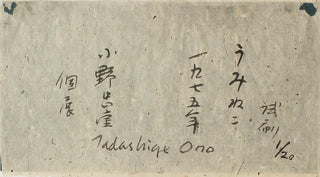 試刷 1/20
うみねこ
一九七五年
小野忠重
個展
Tadashige Ono